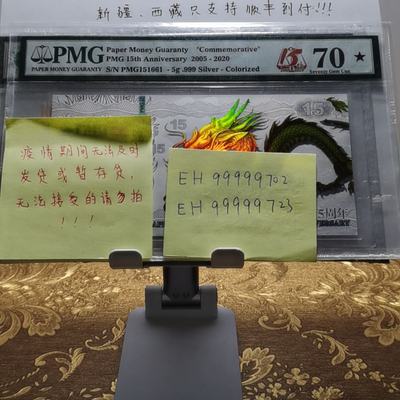 新疆、西藏只支持顺丰到付!!!
PMG
PAPER MONEY GUARANTY
Paper Money Guaranty "Commemorative"
PMG 15th Anniversary 2005 - 2020
S/N PMG151661 - 5g .999 Silver - Colorized
15
70 ★
Seventy Gem Unc
15
15
疫情期间无法及时
发货或暂存货,
无法接受的请勿拍
!!!
EH 99999702
EH 99999723
5周年